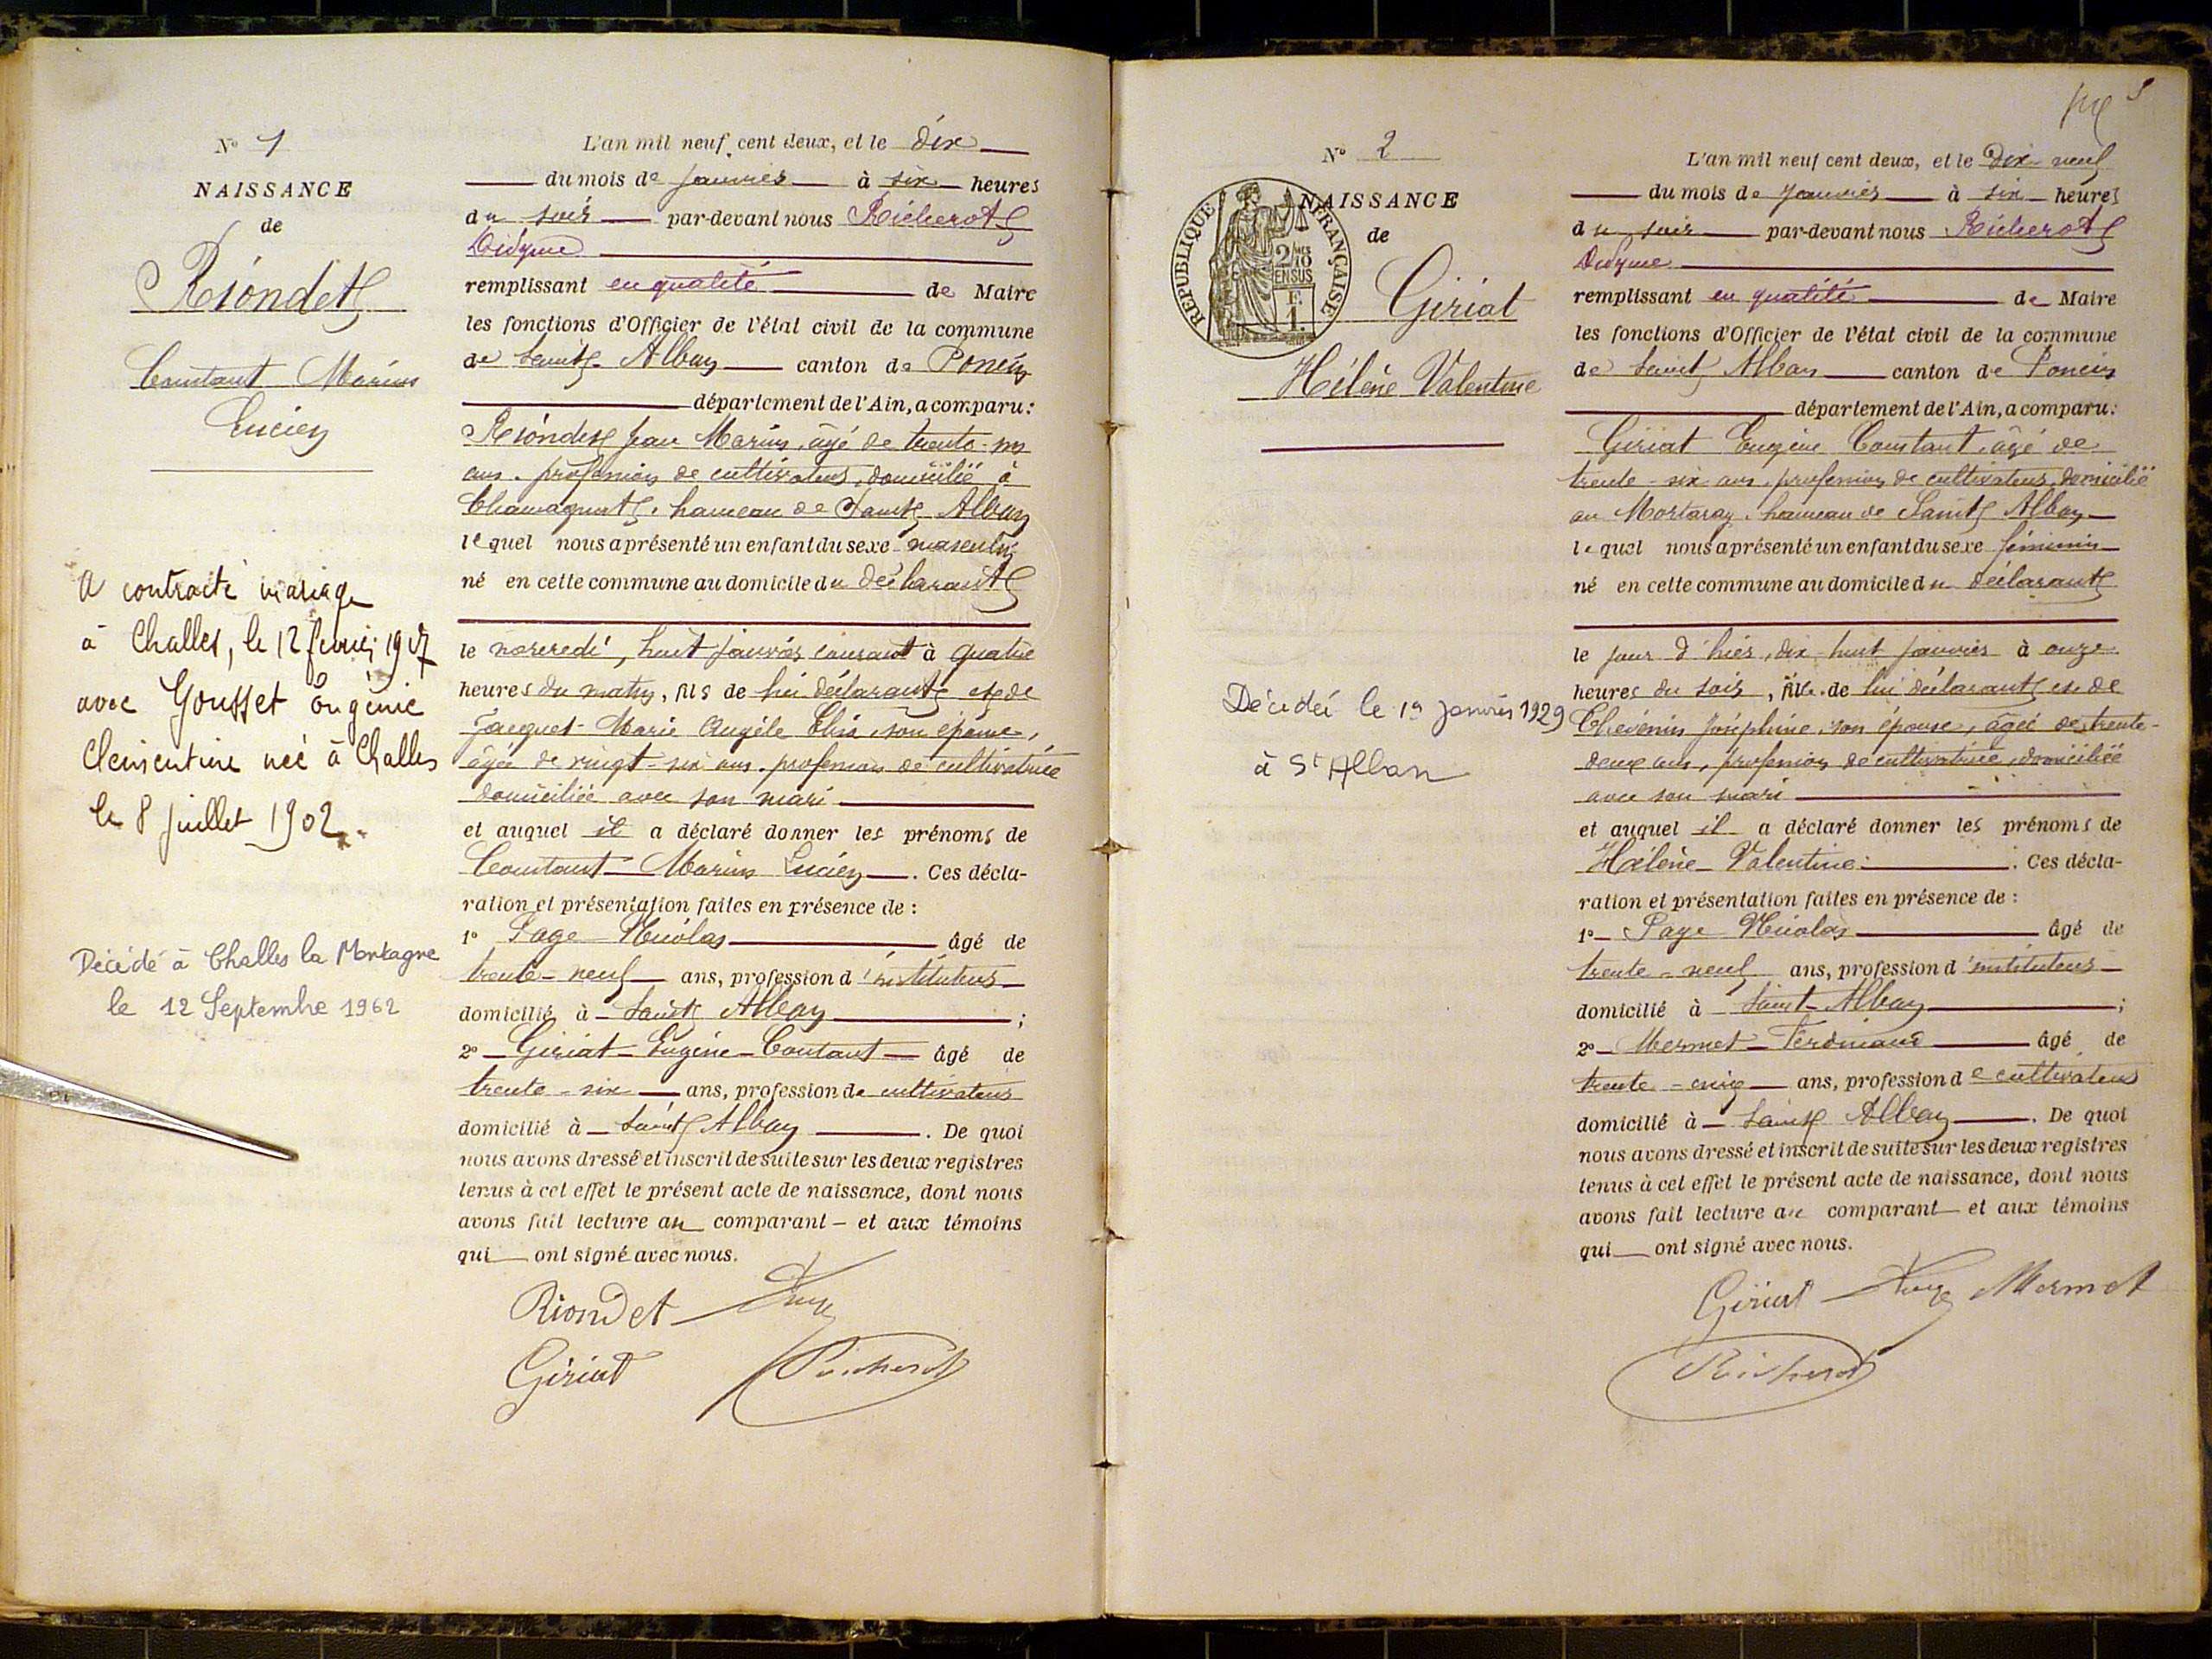 N° 1
NAISSANCE
de
Riondet
Constant Marius
Lucien
A contracté mariage
à Challes, le 12 février
avec Gousset Eugénie
Clémentine née à Challes
le 8 juillet 1902.
Décédé à Challes la Montagne
le 12 Septembre 1962
L'an mil neuf cent deux, et le dix
du mois de janvier à six heures
du soir par-devant nous Richerot
Didyme
remplissant en qualité de Maire
les fonctions d'Officier de l'état civil de la commune
de Saint-Alban canton de Poncin
département de l'Ain, a comparu:
Riondet Jean Marius, âgé de trente-
ans, profession de cultivateur, domicilié à
hameau de Saint Alban
lequel nous a présenté un enfant du sexe masculin
né en cette commune au domicile du déclarant
le mercredi, huit janvier courant à quatre
heures du matin, fils de lui déclarant et de
Jacquet Marie Angèle son épouse,
âgée de vingt-six ans, profession de cultivatrice
domiciliée avec son mari
et auquel il a déclaré donner les prénoms de
Constant Marius Lucien. Ces décla-
ration et présentation faites en présence de :
1° Page Nicolas âgé de
trente-neuf ans, profession d'instituteur
domicilié à Saint Alban ;
2° Giriat Eugène Constant âgé de
trente-six ans, profession de cultivateur
domicilié à Saint Alban. De quoi
nous avons dressé et inscrit de suite sur les deux registres
tenus à cet effet le présent acte de naissance, dont nous
avons fait lecture au comparant et aux témoins
qui ont signé avec nous.
Riondet Page
Giriat Richerot
3
N° 2
NAISSANCE
de
RÉPUBLIQUE FRANÇAISE
2/10
EN SUS
Giriat
Hélène Valentine
Décédée le 19 janvier 1929
à St Alban
L'an mil neuf cent deux, et le dix-neuf
du mois de janvier à six heures
du soir par-devant nous Richerot
Didyme
remplissant en qualité de Maire
les fonctions d'Officier de l'état civil de la commune
de Saint Alban canton de Poncin
département de l'Ain, a comparu:
Giriat Eugène Constant, âgé de
trente-six ans, profession de cultivateur, domicilié
au Mortaray, hameau de Saint Alban
lequel nous a présenté un enfant du sexe féminin
né en cette commune au domicile du déclarant
le jour d'hier, dix-huit janvier à onze
heures du soir, fille de lui déclarant et de
Chevénin Joséphine, son épouse, âgée de trente-
deux ans, profession de cultivatrice, domiciliée
avec son mari
et auquel il a déclaré donner les prénoms de
Hélène Valentine. Ces décla-
ration et présentation faites en présence de :
1° Page Nicolas âgé de
trente-neuf ans, profession d'instituteur
domicilié à Saint-Alban ;
2° Mermet Ferdinand âgé de
trente-cinq ans, profession de cultivateur
domicilié à Saint Alban. De quoi
nous avons dressé et inscrit de suite sur les deux registres
tenus à cet effet le présent acte de naissance, dont nous
avons fait lecture au comparant et aux témoins
qui ont signé avec nous.
Giriat Page Mermet
Richerot